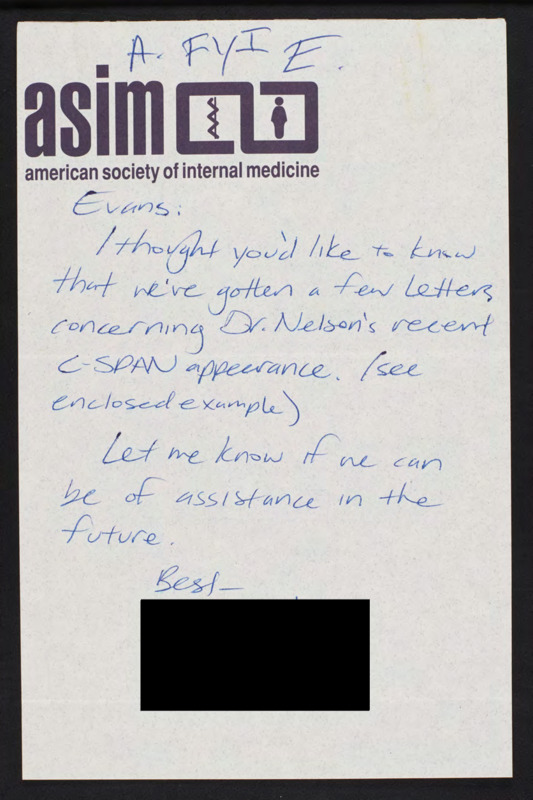 A. FYI E.
asim
american society of internal medicine
Evans:
I thought you'd like to know
that we've gotten a few letters
concerning Dr. Nelson's recent
C-SPAN appearance. (see
enclosed example)
Let me know if we can
be of assistance in the
future.
Best—